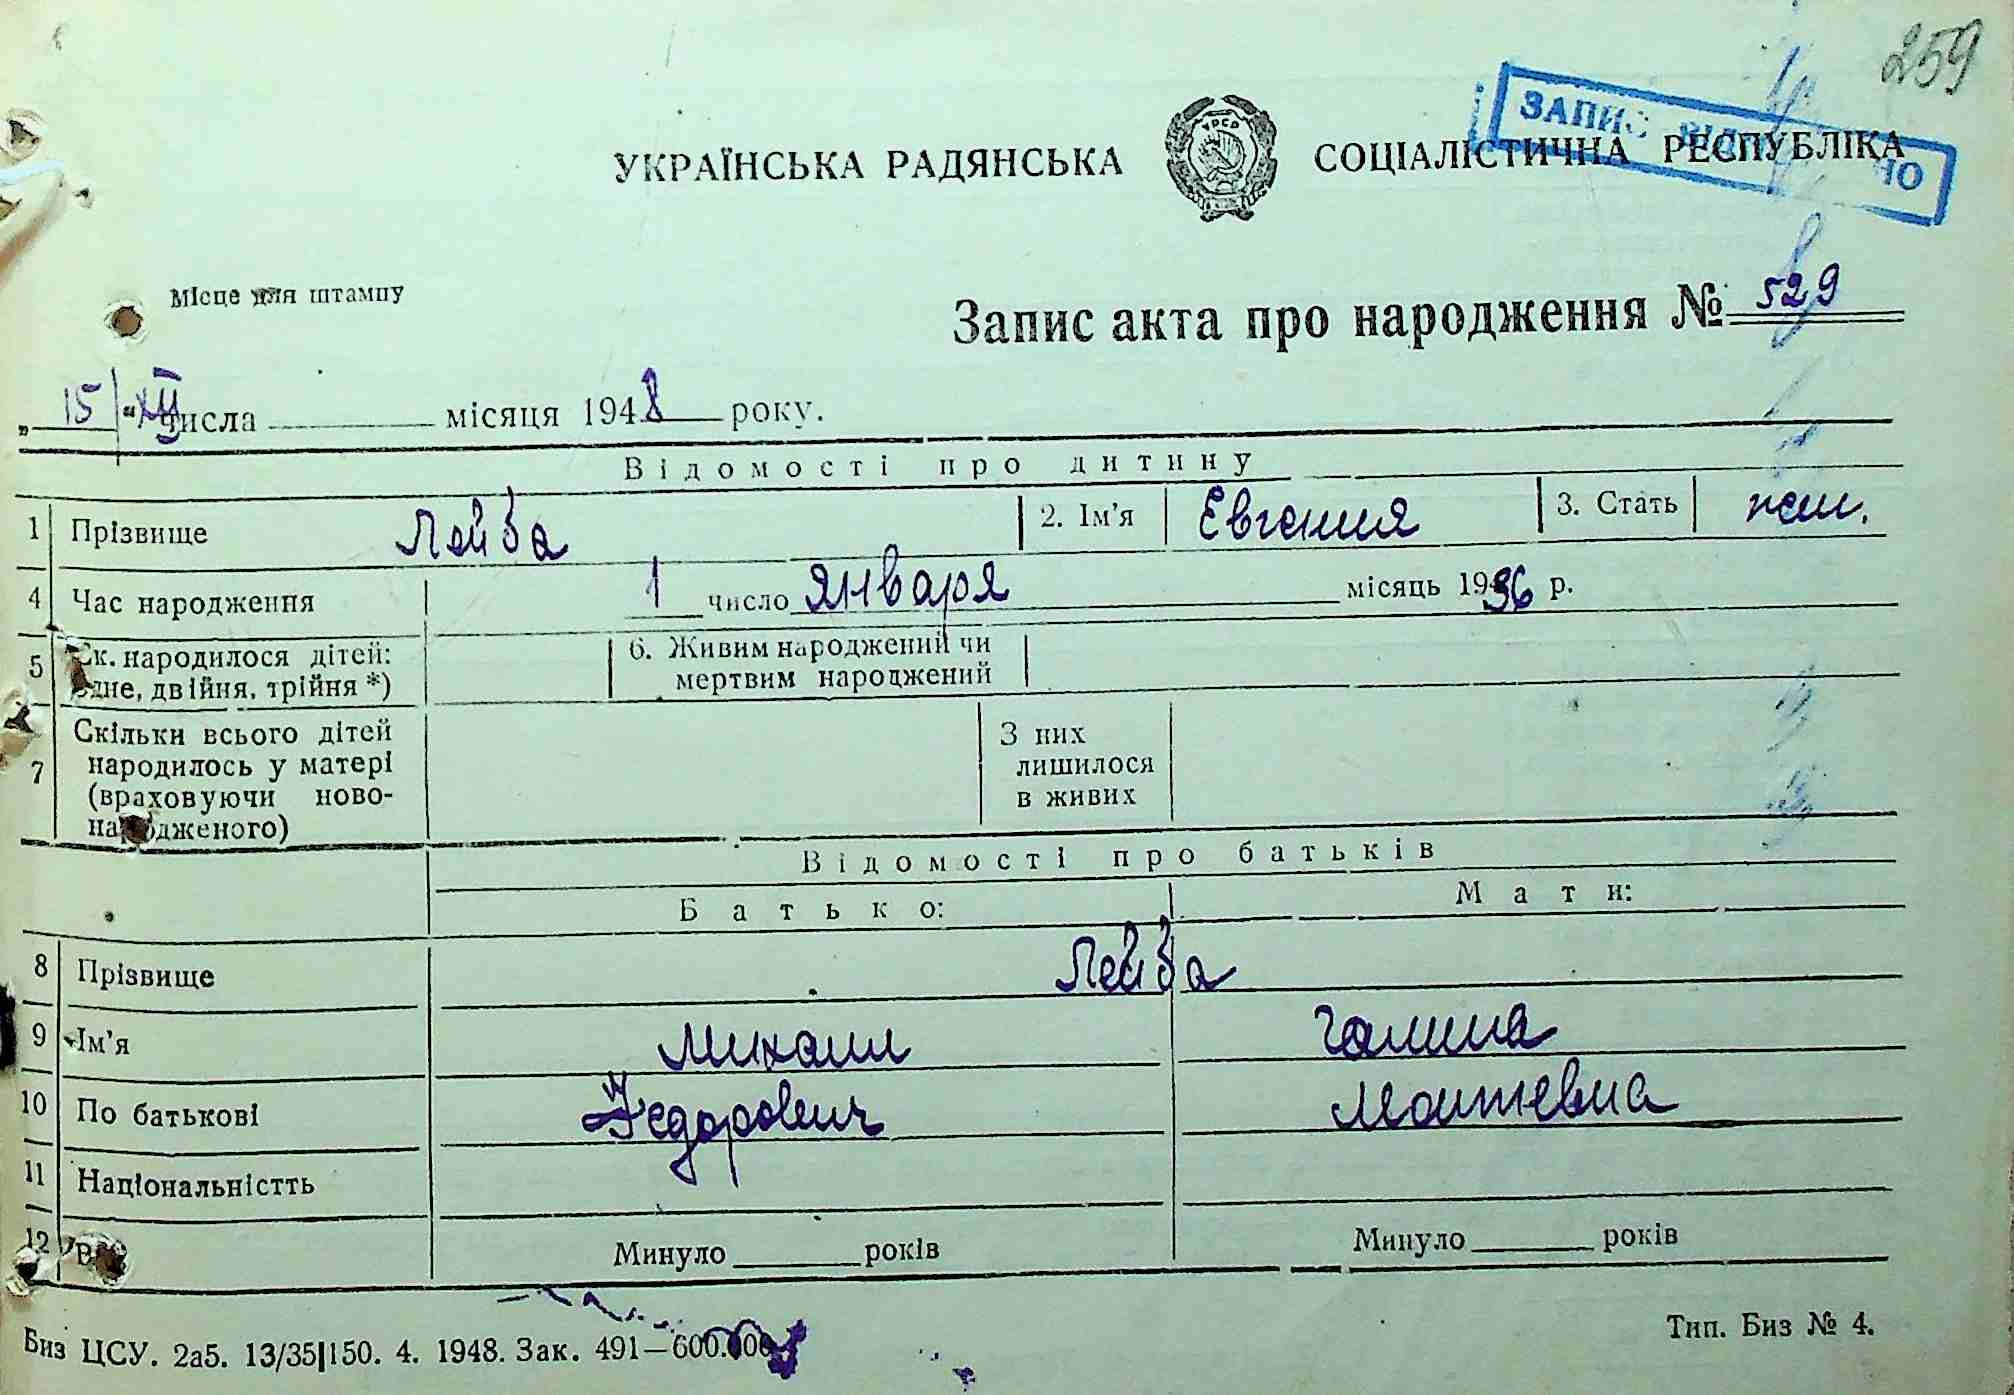 259
ЗАПИС ВІДНОВЛЕНО
УКРАЇНСЬКА РАДЯНСЬКА СОЦІАЛІСТИЧНА РЕСПУБЛІКА
УРСР
Місце для штампу
Запис акта про народження № 529
„15“ XII числа місяця 1948 року.
Відомості про дитину
1 Прізвище Лейба 2. Ім'я Евгения 3. Стать жен.
4 Час народження 1 число января місяць 1936 р.
5 Ск. народилося дітей: одне, двійня, трійня *) 6. Живим народжений чи мертвим народжений
7 Скільки всього дітей народилось у матері (враховуючи ново-народженого) З них лишилося в живих
Відомості про батьків
Батько: Мати:
8 Прізвище Лейба
9 Ім'я Михаил Галина
10 По батькові Федорович Моитевна
11 Національністть
12 Вік Минуло років Минуло років
Биз ЦСУ. 2а5. 13/35|150. 4. 1948. Зак. 491—600.000
Тип. Биз № 4.